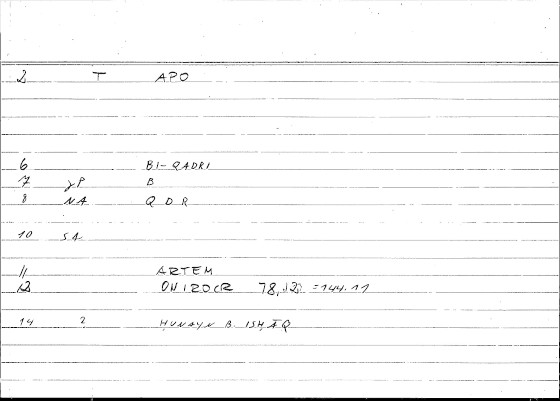 2 T APO
6 BI-QADRI
7 γP B
8 NA Q D R
10 SA
11 ARTEM
12 ONIROCR 78, 12 = 144.11
14 2 ḤUNAYN B. ISḤĀQ